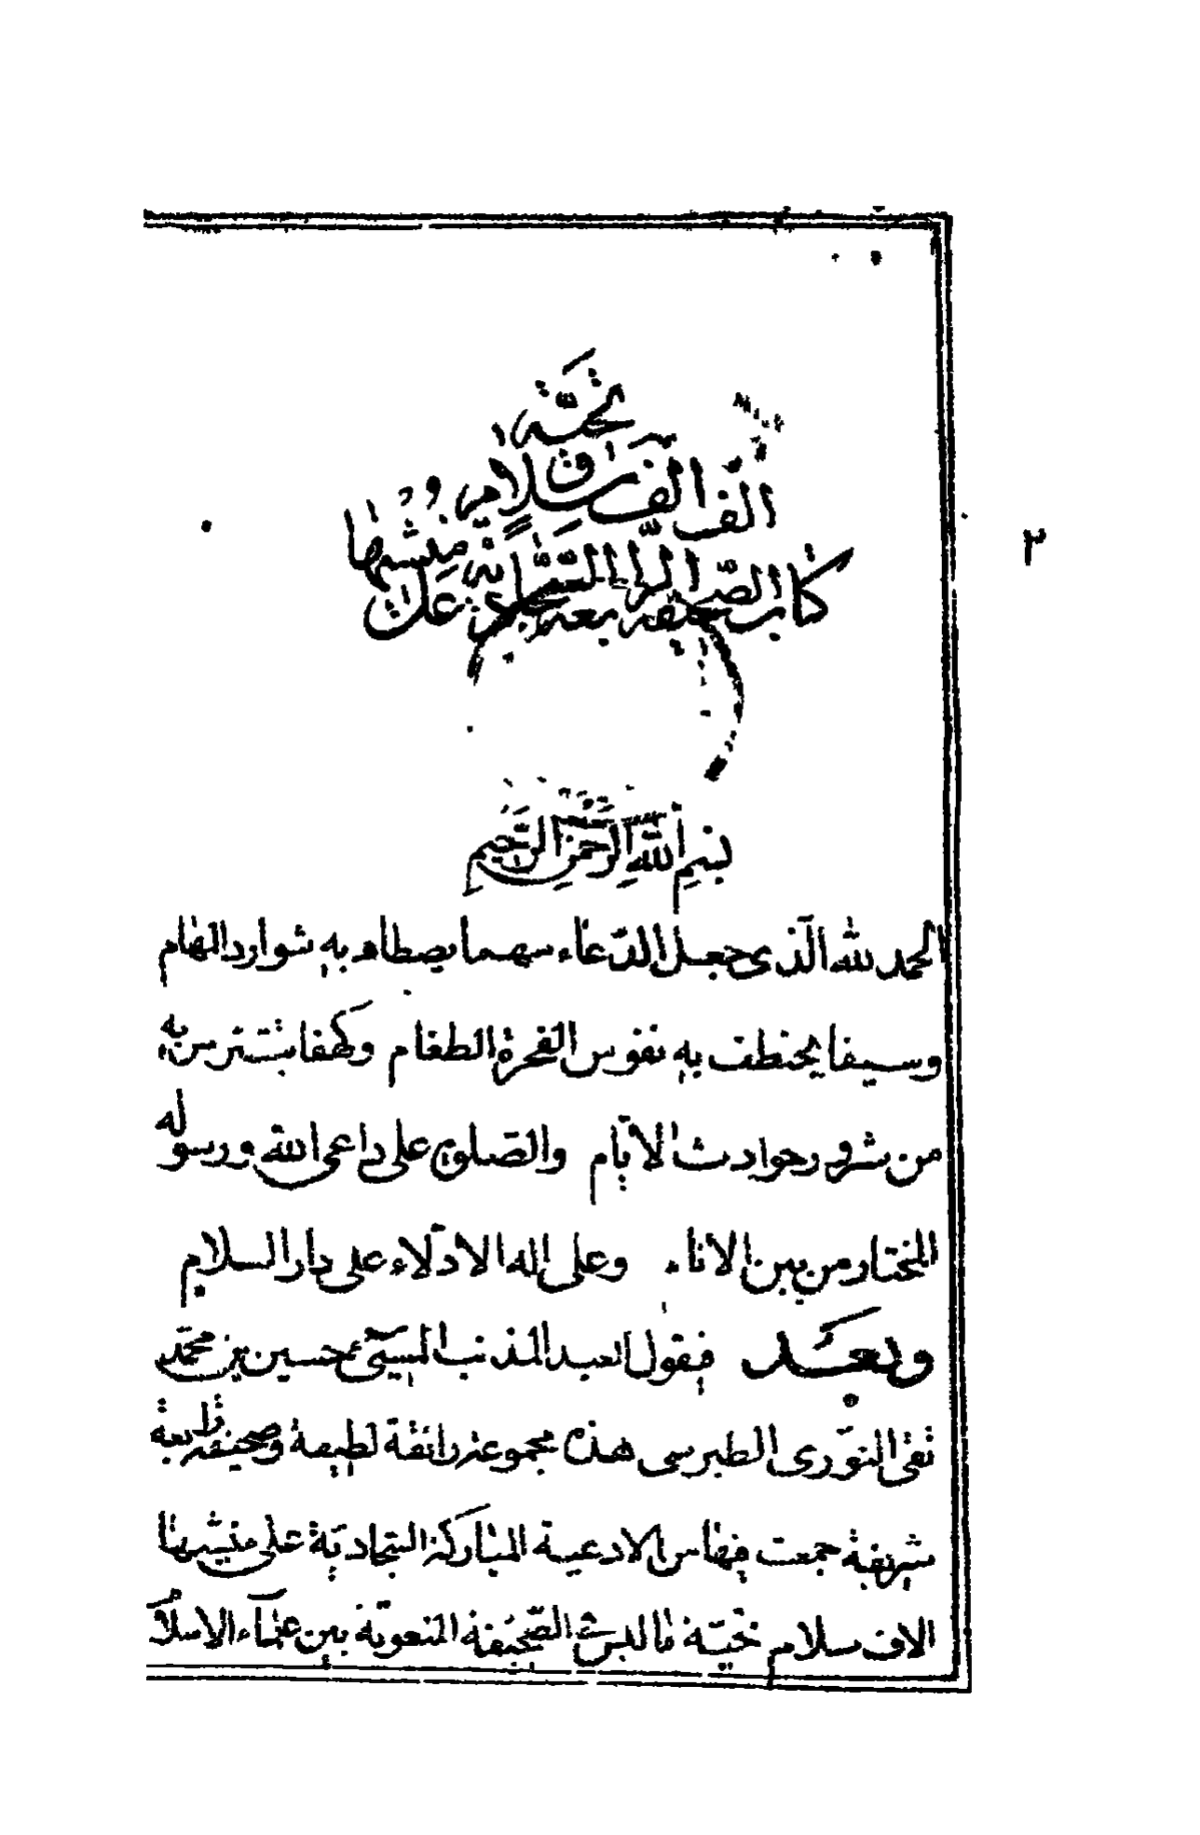 كتاب الصحيفة الرابعة السجادية على
منشيها الف الف سلام و تحية
٢
بسم الله الرحمن الرحيم
الحمد لله الذى جعل الدعاء سهما يصطاد به شوارد الهام
وسيفا يختطف به نفوس الفجرة الطغام وكهفا يتترس به
من شرور حوادث الايام والصلوة على داعى الله ورسوله
المختار من بين الانام وعلى اله الادلاء على دار السلام
وبعد فيقول العبد المذنب المسيئ حسين بن محمد
تقى النورى الطبرسى هذه مجموعة رائقة لطيفة وصحيفة رابعة
شريفة جمعت فيها من الادعية المباركة السجادية على منشيها
الاف سلام تحية ما ليس فى الصحيفة المنعوتة بين علماء الاسلام